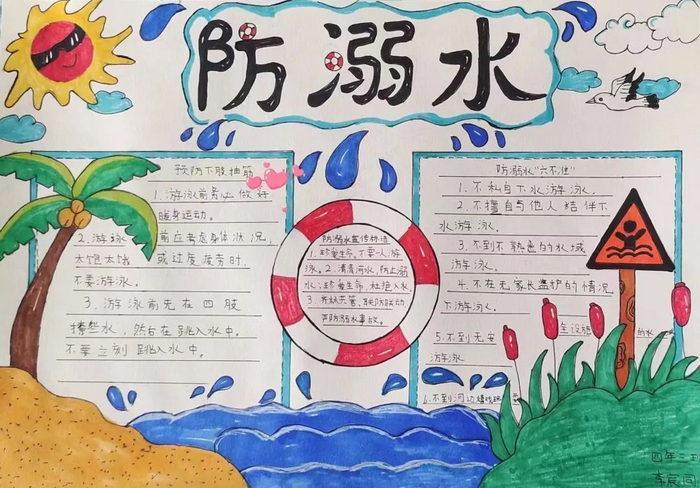 防溺水
预防下肢抽筋
1.游泳前务必做好
暖身运动。
2.游泳前应考虑身体状况,
太饱太饿或过度疲劳时,
不要游泳。
3.游泳前先在四肢
撩些水,然后在跳入水中。
不要立刻跳入水中。
防溺水宣传标语
1.珍爱生命,不要一人游
泳。2.清清河水,防止溺
水;珍爱生命,杜绝入水
严防溺水事故。
防溺水"六不准"
1.不私自下水游泳。
2.不擅自与他人结伴下
水游泳。
3.不到不熟悉的水域
游泳。
4.不在无家长监护的情况
下游泳。
5.不到无安全设施的水
游泳
6.不到河边嬉戏
四年二
李宸